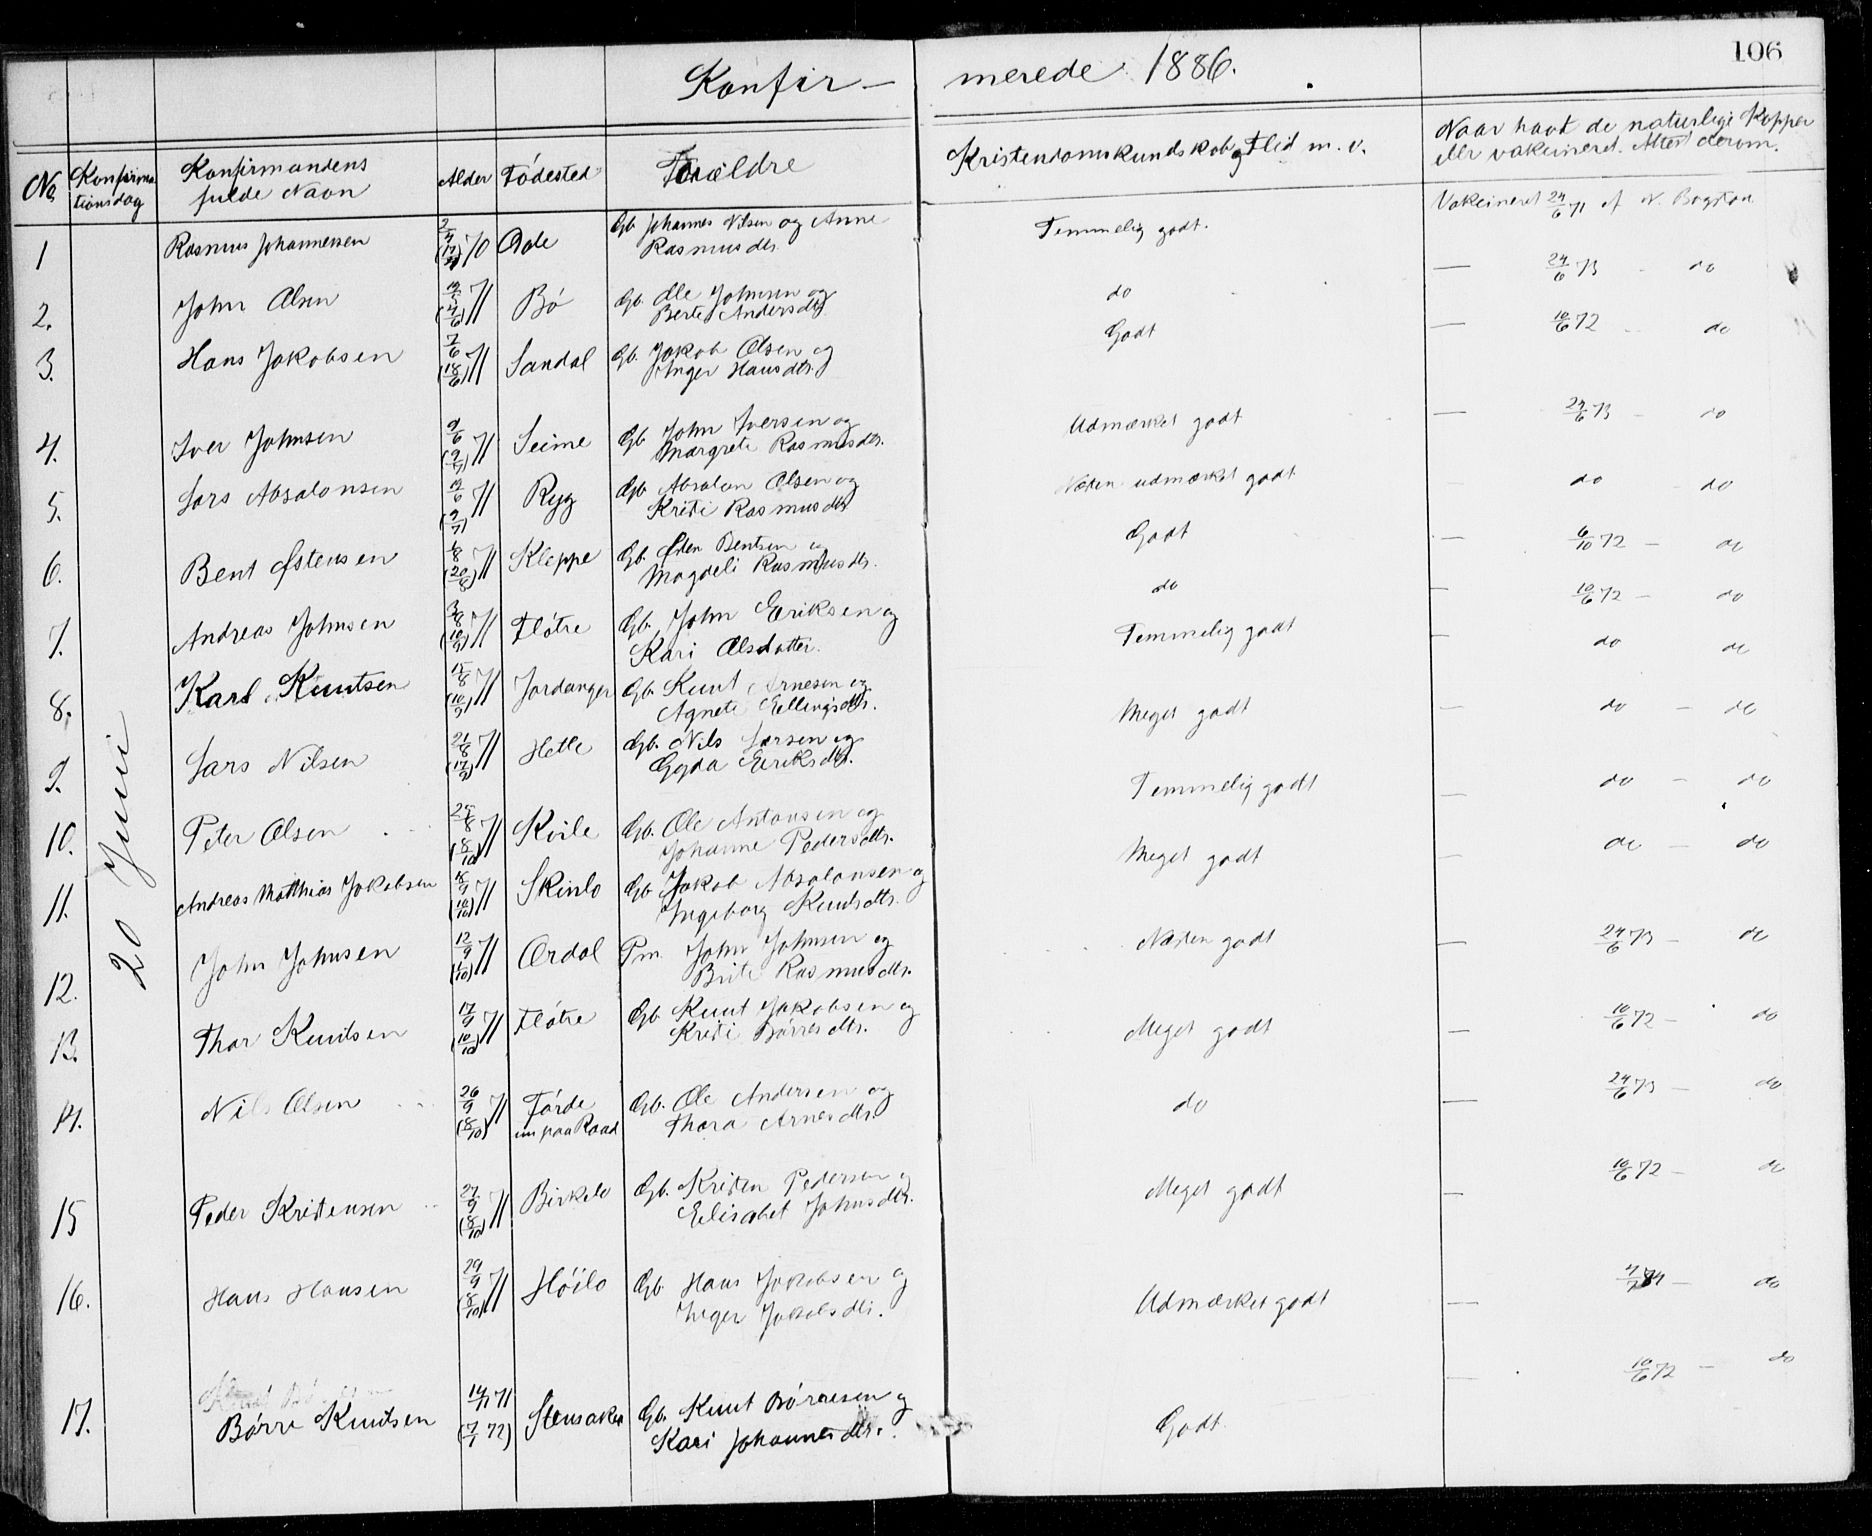 106
Konfir- merede 1886.
No. Konfirma- tionsdag Konfirmandens fulde Navn Alder Fødested Forældre Kristendomskundskab og Flid m. v. Naar havt de naturlige Kopper eller vakcineret. Attest derom.
20 Juni
1 Rasmus Johannessen 70 Aade Gb. Johannes Nilsen og Anne Temmelig godt. Vakcineret 24/6 71 af N. Bogstad
Rasmusdtr.
2. John Olsen 71 Bø Gb. Ole Johnsen og do — 24/6 73 - do
Berte Andersdtr.
3. Hans Jakobsen 7/6 (18/6) 71 Sandal Gb. Jakob Olsen og Godt — 10/6 72 - do
Inger Hansdtr.
4. Iver Johnsen 9/6 (9/7) 71 Seime Gb. John Iversen og Udmærket godt — 24/6 73 - do
Margrete Rasmusdtr.
5. Lars Absalonsen (9/7) 71 Ryg Gb. Absalon Olsen og Næsten udmærket godt - do - do
Kristi Rasmusdtr.
6. Bent Østensen (20/8) 71 Kleppe Gb. Østen Bentsen og Godt — 6/10 72 — do
Magdeli Rasmusdtr.
7. Andreas Johnsen 3/8 (10/9) 71 Fløtre Gb. John Eriksen og do — 10/6 72 — do
Kari Olsdatter.
8. Karl Knutsen 15/8 (10/9) 71 Jordanger Gb. Knut Arnesen og Temmelig godt — do do
Agnete Ellingsdtr.
9. Lars Nilsen 21/8 (17/9) 71 Hetle Gb. Nils Larsen og Meget godt — do — do
Gyda Eriksdtr.
10. Peter Olsen 25/8 (8/10) 71 Kvile Gb. Ole Antonsen og Temmelig godt — do — do
Johanne Pedersdtr.
11. Andreas Matthias Jakobsen 71 Skinlo Gb. Jakob Absalonsen og Meget godt — do — do
Ingeborg Knutsdtr.
12. John Johnsen 12/9 (1/10) 71 Ordal Pm. John Johnsen og Næsten godt — 24/6 73 — do
Brite Rasmusdtr.
13. Thor Knutsen 17/9 (10/10) 71 Fløtre Gb. Knut Jakobsen og Meget godt — 10/6 72 — do
Kristi Børresdtr.
14. Nils Olsen 26/9 (8/10) 71 Førde Gb. Ole Andersen og do — 24/6 73 — do
nu paa Raad Thora Arnesdtr.
15 Peder Kristensen 27/9 (8/10) 71 Birkelo Gb. Kristen Pedersen og Meget godt — 10/6 72 — do
Elisabet Johnsdtr.
16. Hans Hansen 29/9 (8/10) 71 Høilo Gb. Hans Jakobsen og Udmærket godt — 74 — do
Inger Jakobsdtr.
17. Børre Knutsen 71 (7/1 72) Stensaker Gb. Knut Børresen og Godt. — 10/6 72 — do
Kari Johannesdtr.